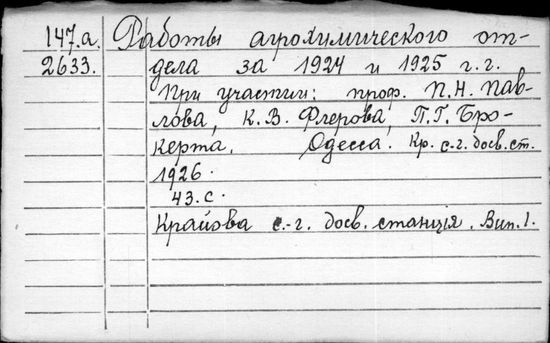 147.а. Работы агрохимического от-
2633. дела за 1924 и 1925 г.г.
При участии: проф. П.Н. Пав-
лова, К.В. Флерова, П.Г. Бро-
керта. Одесса. Кр. с.-г. досв. ст.
1926.
43.с.
Крайова с.-г. досв. станція. Вип. 1.